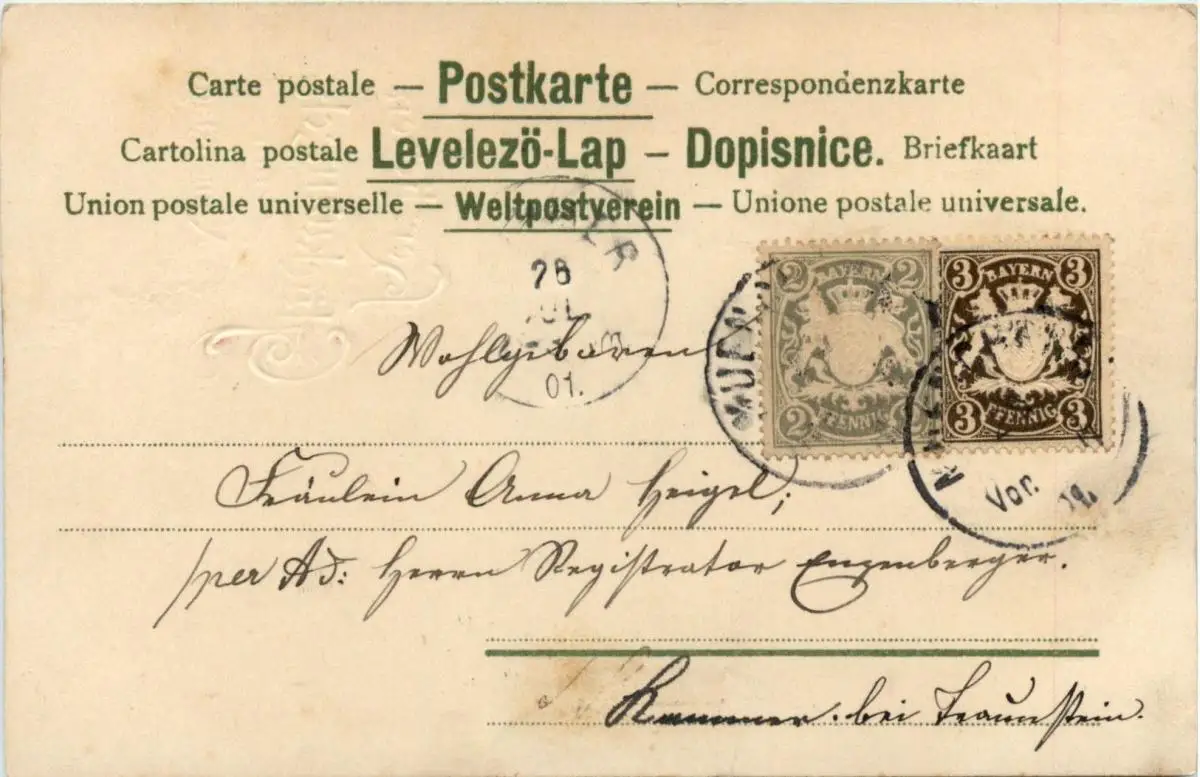 Carte postale — Postkarte — Correspondenzkarte
Cartolina postale Levelező-Lap — Dopisnice. Briefkaart
Union postale universelle — Weltpostverein — Unione postale universale.
26
JUL
01.
2 BAYERN 2
2 PFENNIG
3 BAYERN 3
3 PFENNIG 3
MUEN
Vor.
Wohlgeboren
Fräulein Anna Heigel;
/per Ad: Herrn Registrator Enzenberger.
Kammer bei Traunstein.